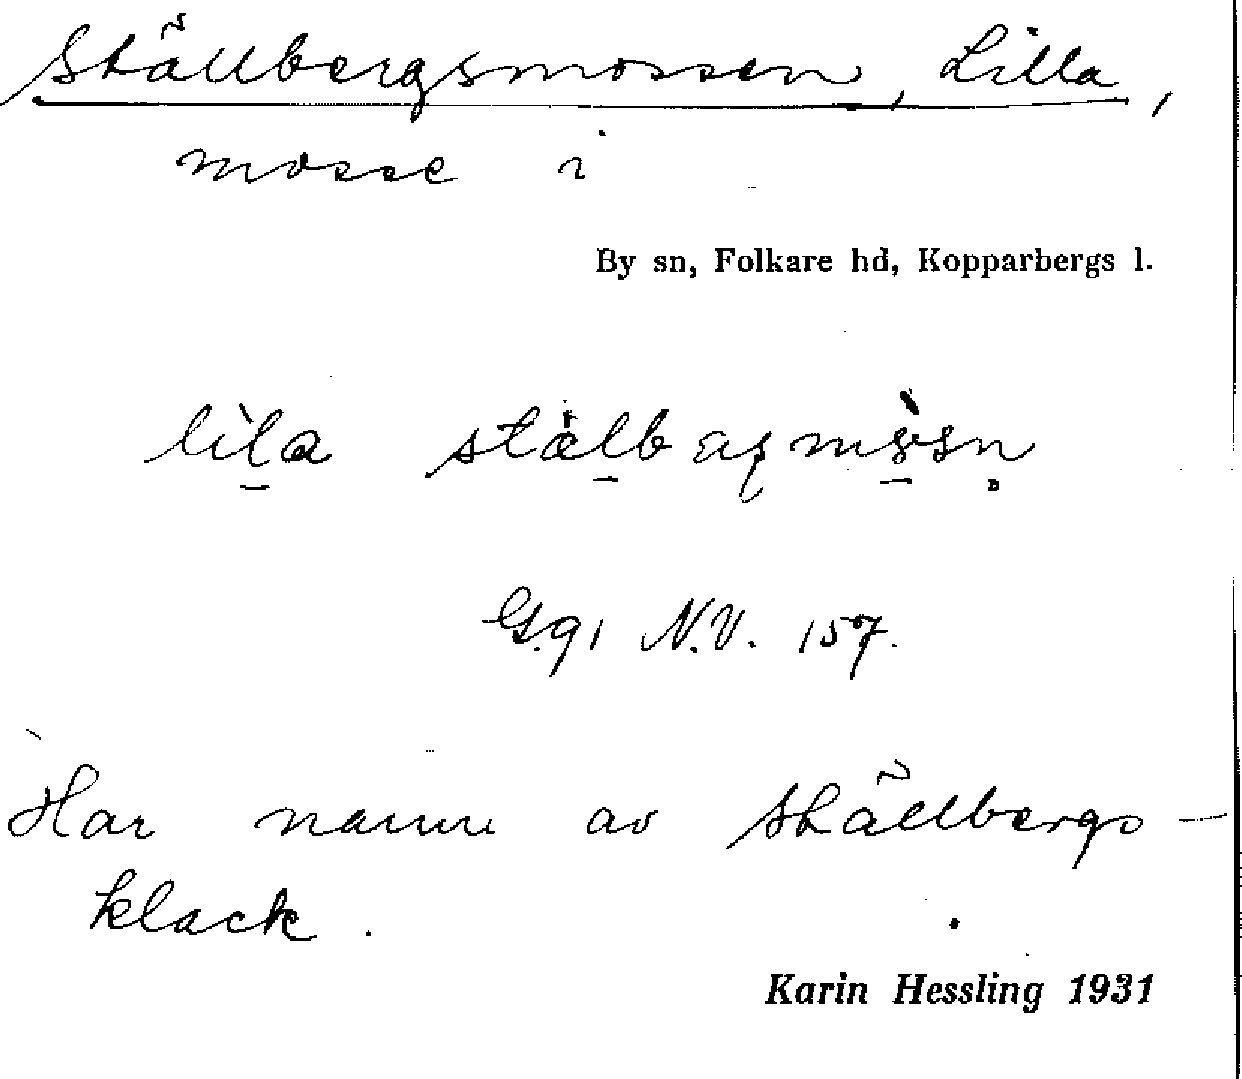 Ställbergsmossen, Lilla,
mosse i
By sn, Folkare hd, Kopparbergs l.
lila
G.q1 N.V. 157.
Har namn av Ställbergs-
klack.
Karin Hessling 1931